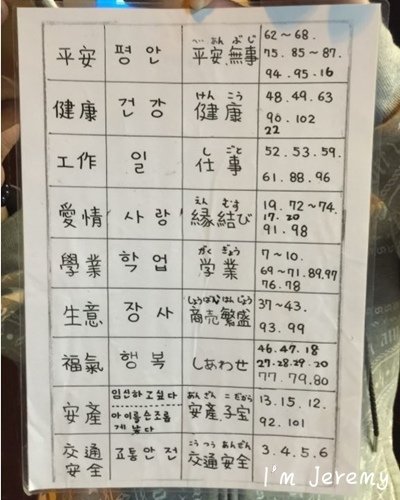 平安 평안 へいあんぶじ 平安無事 62～68.
75.85～87.
94.95.16
健康 건강 けんこう 健康 48.49.63
90.102
22
工作 일 しごと 仕事 52.53.59.
61.88.96
愛情 사랑 えんむすび 縁結び 19.72～74.
17.20
91.98
學業 학업 がくぎょう 学業 7～10.
69～71.89.97
76.78
生意 장사 しょうばいはんじょう 商売繁盛 37～43.
93.99
福氣 행복 しあわせ 46.47.18
27.28.29.20
77.79.80
安產 임신하고싶다 あんざん こだから 安産子宝 13.15.12.
아이를순조롭
게낳다 92.101
交通安全 교통안전 こうつうあんぜん 交通安全 3.4.5.6
I'm Jeremy